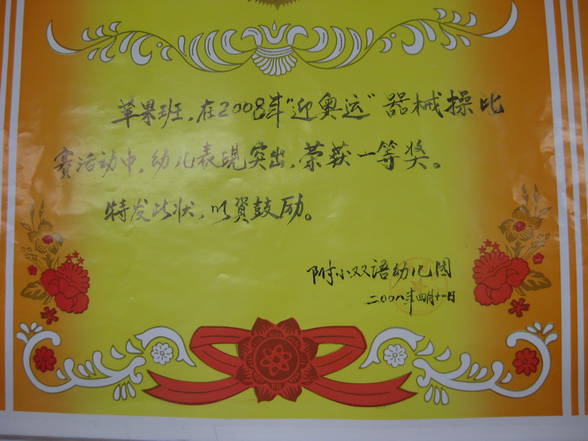 苹果班，在2008年“迎奥运”器械操比
赛活动中，幼儿表现突出，荣获一等奖。
特发此状，以资鼓励。
附小双语幼儿园
二00八年四月十一日